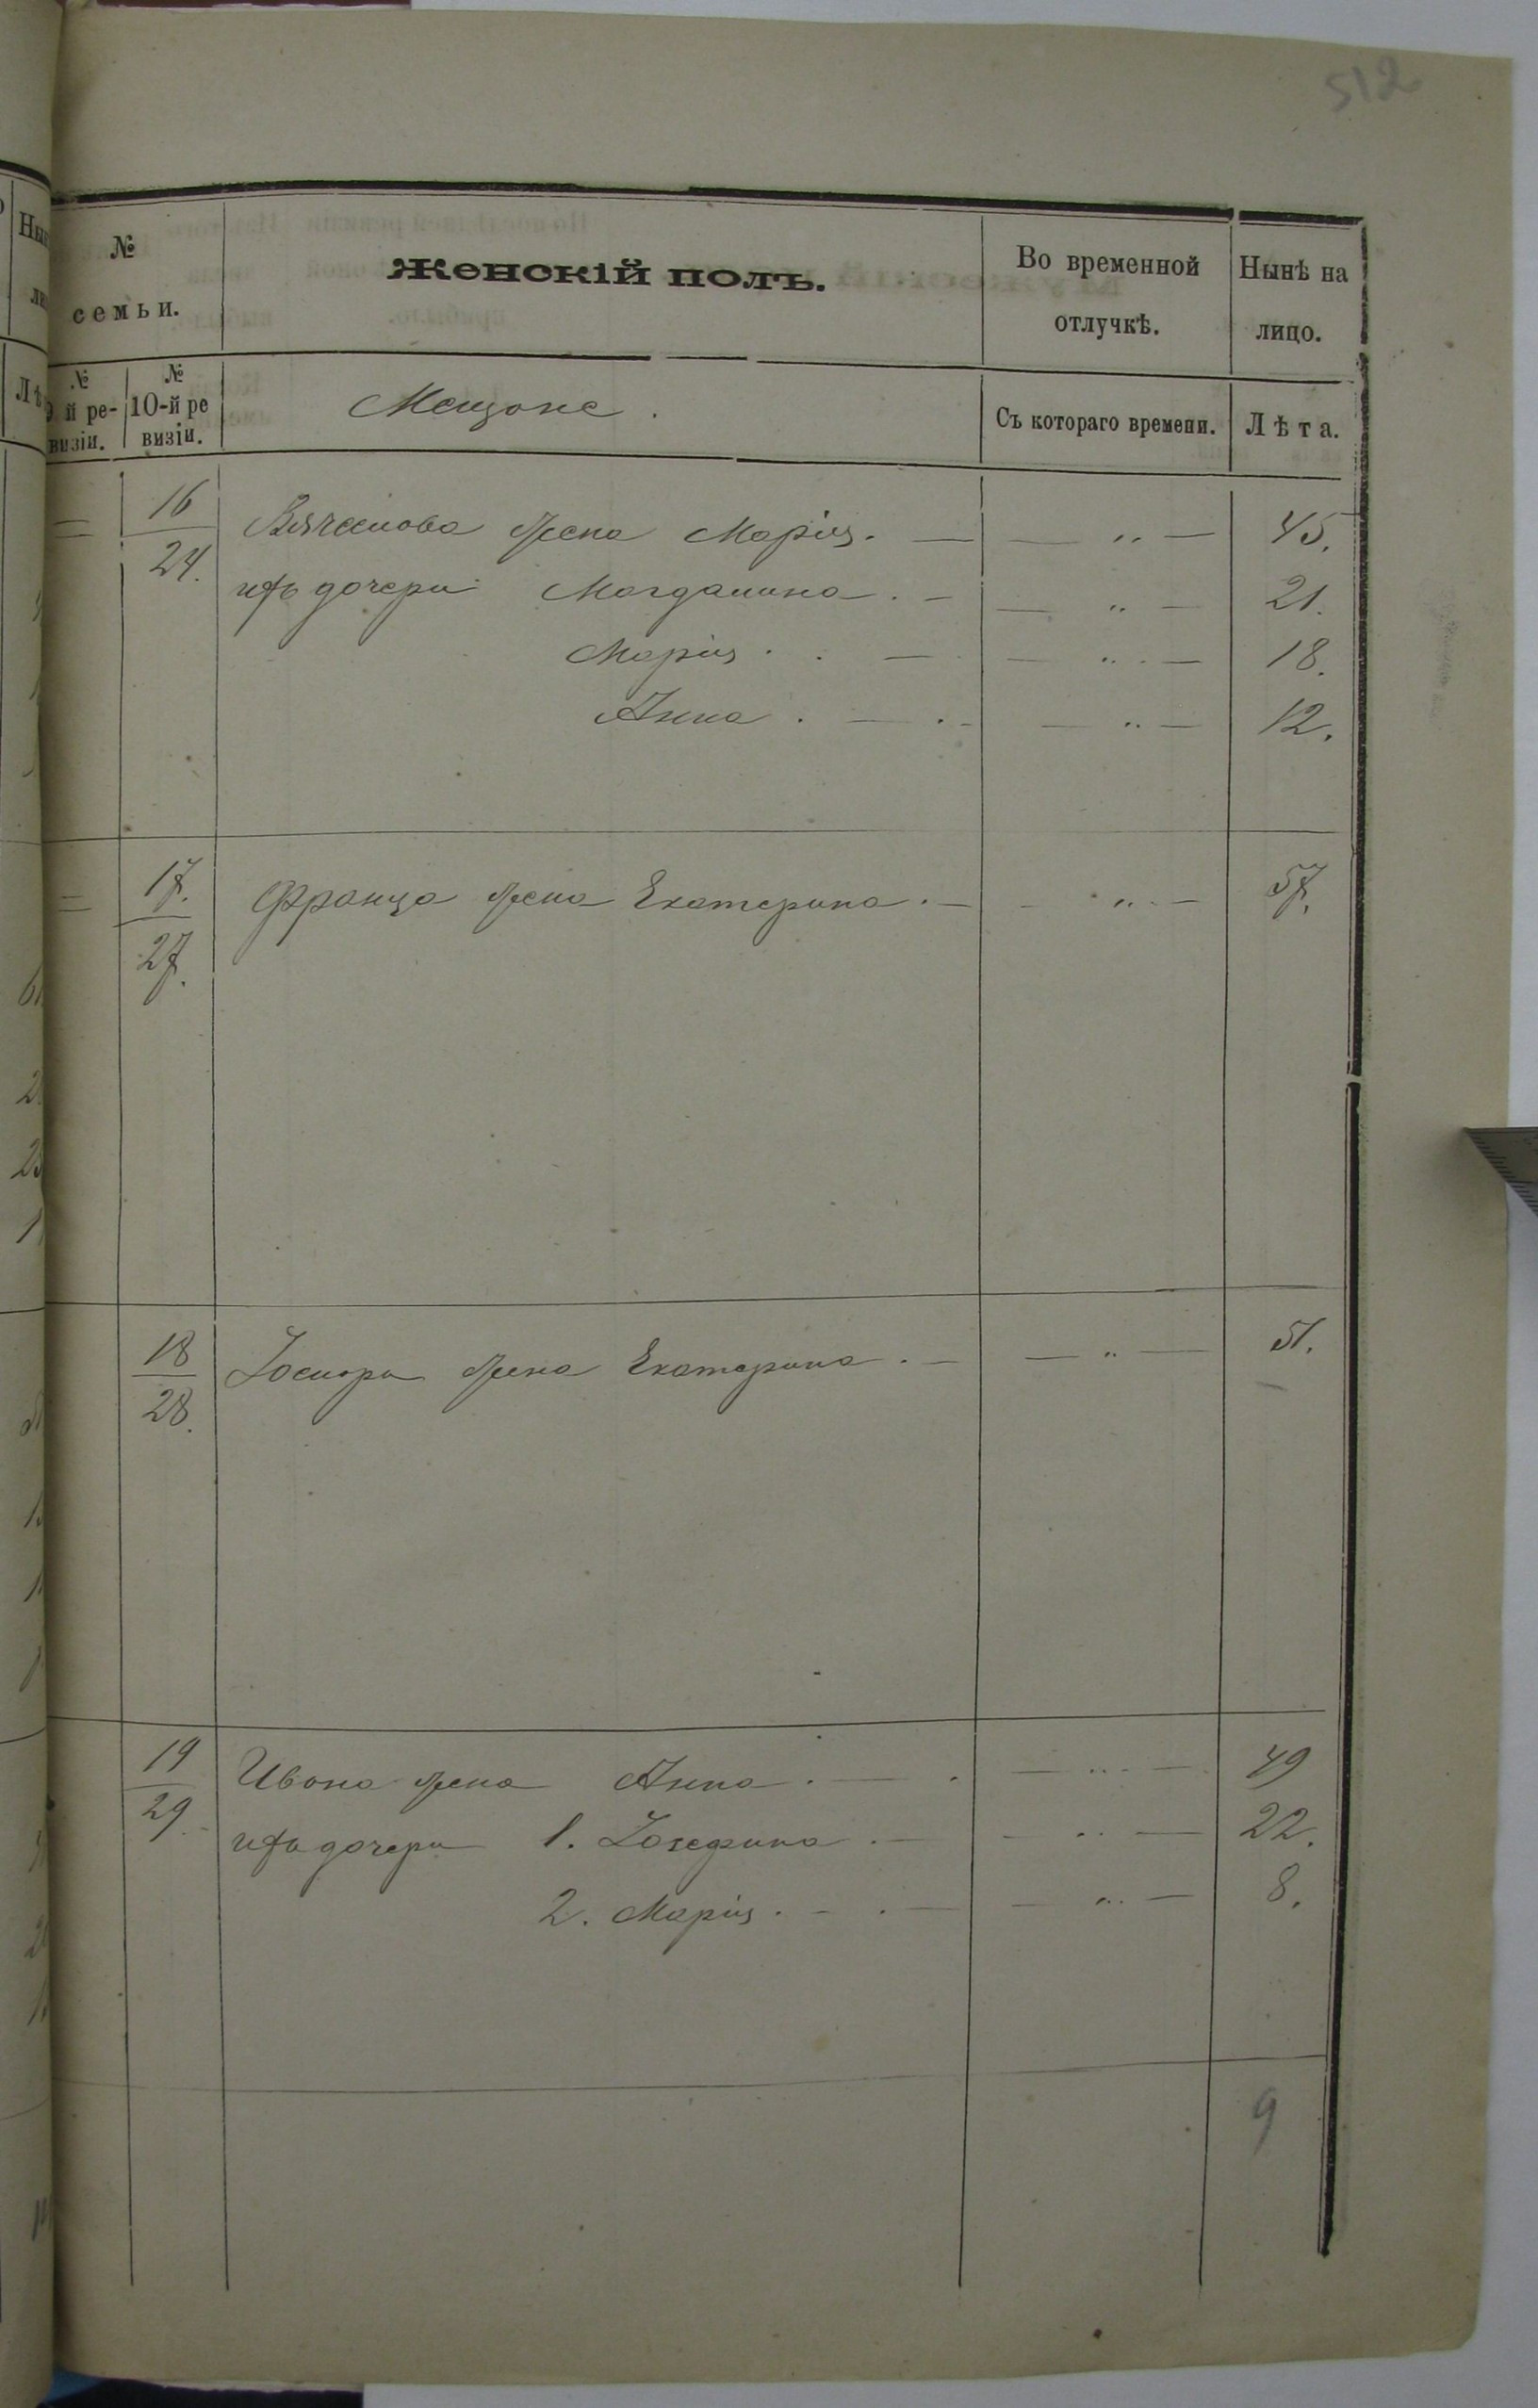 512
№ семьи.
Женскій полъ.
Во временной отлучкѣ.
Нынѣ на лицо.
№ й ре-визіи.
№ 10-й ре визіи.
Мещане.
Съ котораго времени.
Лѣта.
16/24. жена Марія. — — „ — 45.
ихъ дочери Магдалина. — — „ — 21.
Марія. . — — „ — 18.
Анна. — . — — „ — 12.
17./27. Франца жена Екатерина. — — „ — 57.
18/28. жена Екатерина. — — „ — 51.
19/29. Ивана жена Анна. — . — „ — 49
ихъ дочери 1. Іозефина. — — „ — 22.
2. Марія. — . — — „ — 8.
9